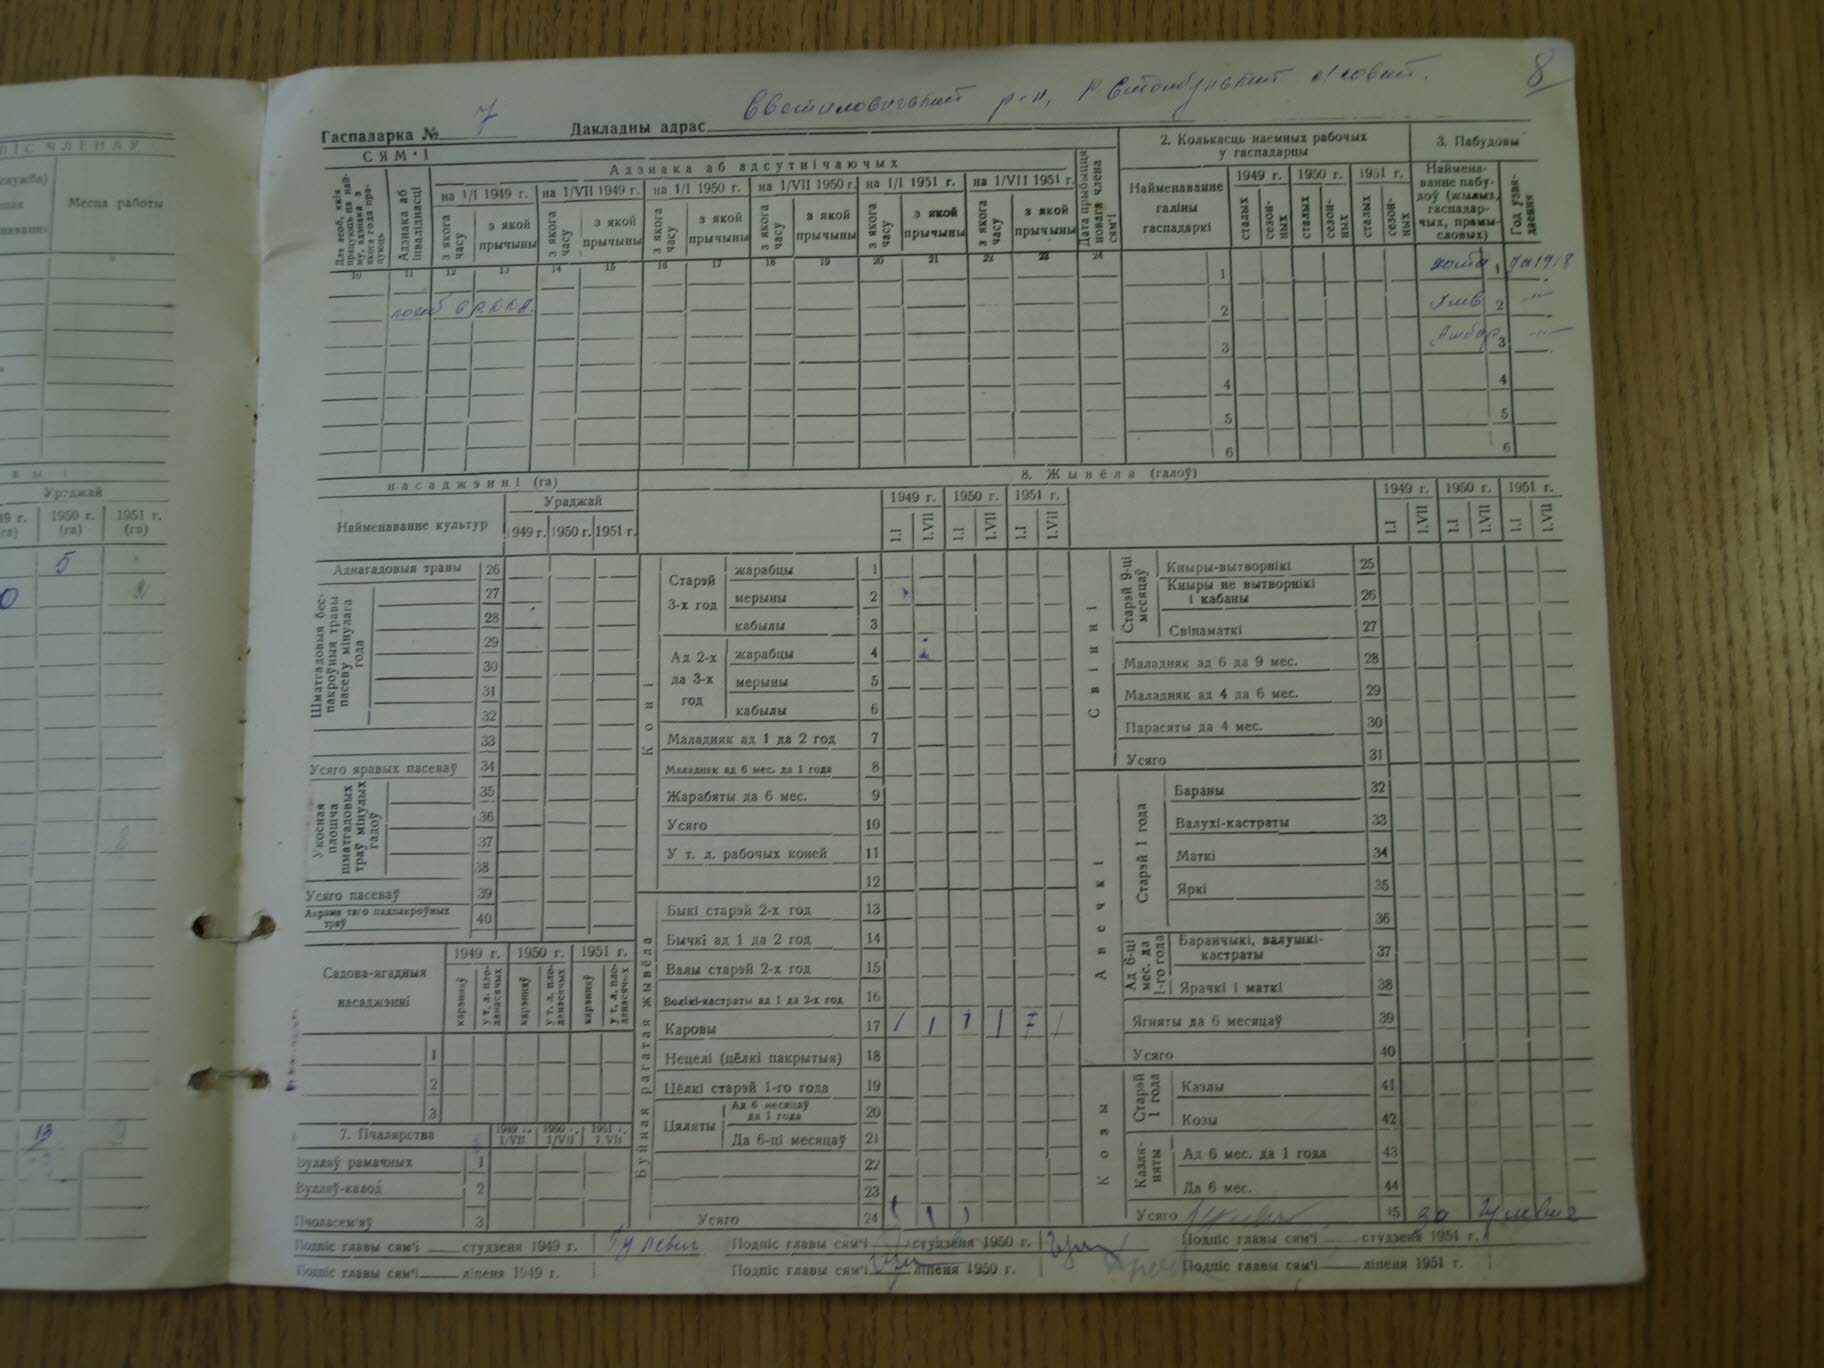 8
Гаспадарка № 7 Дакладны адрас р-н,
СЯМ'І
Адзнака аб адсутнічаючых
2. Колькасць наемных рабочых у гаспадарцы
3. Пабудовы
Адзнака аб інваліднасці
на 1/I 1949 г. на 1/VII 1949 г. на 1/I 1950 г. на 1/VII 1950 г. на 1/I 1951 г. на 1/VII 1951 г.
з якога часу з якой прычыны з якога часу з якой прычыны з якога часу з якой прычыны з якога часу з якой прычыны з якога часу з якой прычыны з якога часу з якой прычыны
Дата прыбыцця новага члена сям'і
Найменаванне галіны гаспадаркі
1949 г. 1950 г. 1951 г.
сталых сезонных сталых сезонных сталых сезонных
Найменаванне пабудоў (жылых, гаспадарчых, прамысловых)
Год узвядзення
10 11 12 13 14 15 16 17 18 19 20 21 22 23 24
1 хата 1
2 Хлев 2
3 Амбар 3
4 4
5 5
6 6
насаджэнні (га)
Найменаванне культур
Ураджай
1949 г. 1950 г. 1951 г.
Аднагадовыя травы 26
Шматгадовыя беспакроўныя травы пасеву мінулага года
27
28
29
30
31
32
33
Усяго яравых пасеваў 34
Укосная плошча шматгадовых траў мінулых гадоў
35
36
37
38
Усяго пасеваў 39
Акрамя таго падпакроўных траў 40
Садова-ягадныя насаджэнні
1949 г. 1950 г. 1951 г.
карэнняў у т. л. пладанасячых карэнняў у т. л. пладанасячых карэнняў у т. л. пладанасячых
1
2
3
7. Пчалярства
1949 г. 1/VII 1950 г. 1/VII 1951 г. 1/VII
Вулляў рамачных 1
Вуллёў-калод 2
Пчоласем'яў 3
8. Жывёла (галоў)
1949 г. 1950 г. 1951 г.
1.I 1.VII 1.I 1.VII 1.I 1.VII
Коні
Старэй 3-х год
жарабцы 1
мерыны 2
кабылы 3
Ад 2-х да 3-х год
жарабцы 4
мерыны 5
кабылы 6
Маладняк ад 1 да 2 год 7
Маладняк ад 6 мес. да 1 года 8
Жарабяты да 6 мес. 9
Усяго 10
У т. л. рабочых коней 11
12
Буйная рагатая жывёла
Быкі старэй 2-х год 13
Бычкі ад 1 да 2 год 14
Валы старэй 2-х год 15
Волікі-кастраты ад 1 да 2-х год 16
Каровы 17 1 1 1 1 1 1
Нецелі (цёлкі пакрытыя) 18
Цёлкі старэй 1-го года 19
Цяляты
Ад 6 месяцаў да 1 года 20
Да 6-ці месяцаў 21
22
23
Усяго 24 1 1 1
1949 г. 1950 г. 1951 г.
1.I 1.VII 1.I 1.VII 1.I 1.VII
Свінні
Старэй 9-ці месяцаў
Кныры-вытворнікі 25
Кныры не вытворнікі і кабаны 26
Свінаматкі 27
Маладняк ад 6 да 9 мес. 28
Маладняк ад 4 да 6 мес. 29
Парасяты да 4 мес. 30
Усяго 31
Авечкі
Старэй 1 года
Бараны 32
Валухі-кастраты 33
Маткі 34
Яркі 35
36
Ад 6-ці мес. да 1-го года
Баранчыкі, валушкі-кастраты 37
Ярачкі і маткі 38
Ягняты да 6 месяцаў 39
Усяго 40
Козы
Старэй 1 года
Казлы 41
Козы 42
Казляняты
Ад 6 мес. да 1 года 43
Да 6 мес. 44
Усяго 45
Подпіс главы сям'і студзеня 1949 г. Подпіс главы сям'і студзеня 1950 г. Подпіс главы сям'і студзеня 1951 г.
Подпіс главы сям'і ліпеня 1949 г. Подпіс главы сям'і ліпеня 1950 г. Подпіс главы сям'і ліпеня 1951 г.
Месца работы
Ураджай
1950 г. (га) 1951 г. (га)
5
13